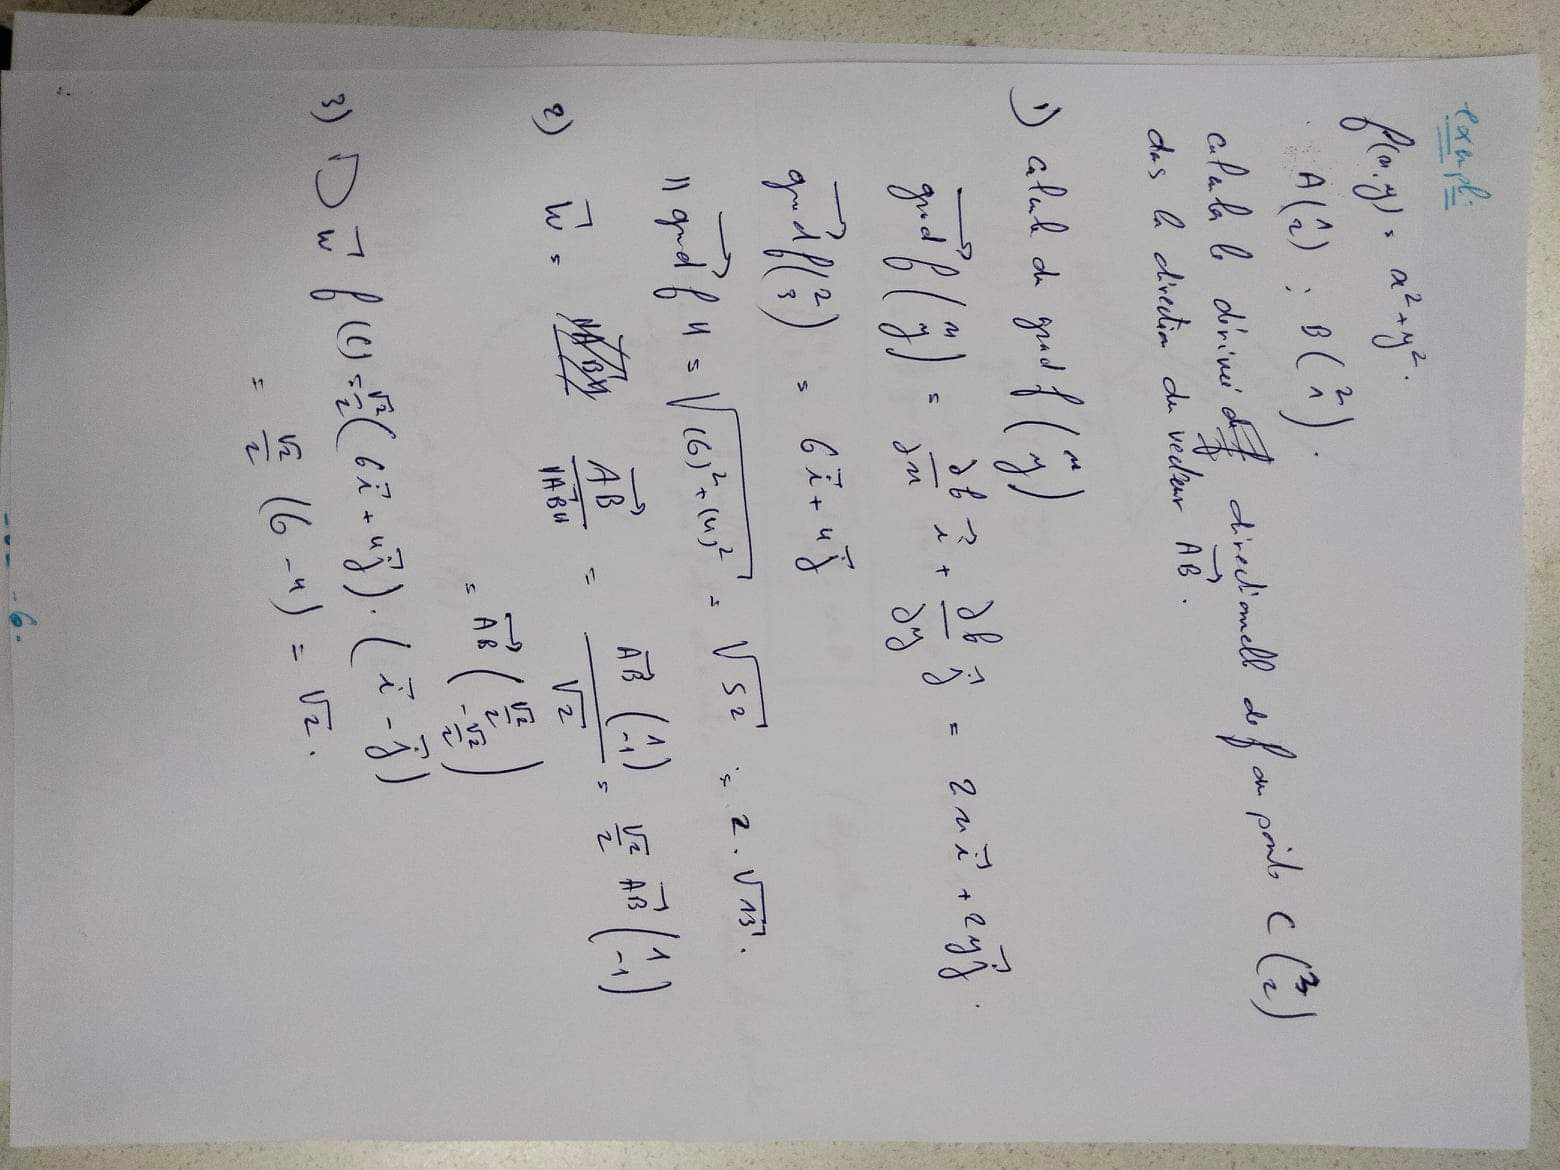 exempl:
f(x,y) = x² + y².
A(1 2) ; B(2 1).
calculer le dérivée directionnelle de f au point C (3 2)
dans la direction du vecteur AB→.
1) calcule du grad f (x y)
grad→ f (x y) = ∂f/∂x i→ + ∂f/∂y j→ = 2x i→ + 2y j→.
grad→ f (2 3) = 6 i→ + 4 j→
|| grad→ f || = √((6)² + (4)²) = √52 = 2.√13.
2) w→ = AB→/||AB→|| = AB→ (1 -1)/√2 = √2/2 AB→ (1 -1)
= AB→ (√2/2 -√2/2)
3) D w→ f(C) = √2/2 (6 i→ + 4 j→).(i→ - j→)
= √2/2 (6 - 4) = √2.
- 6 -